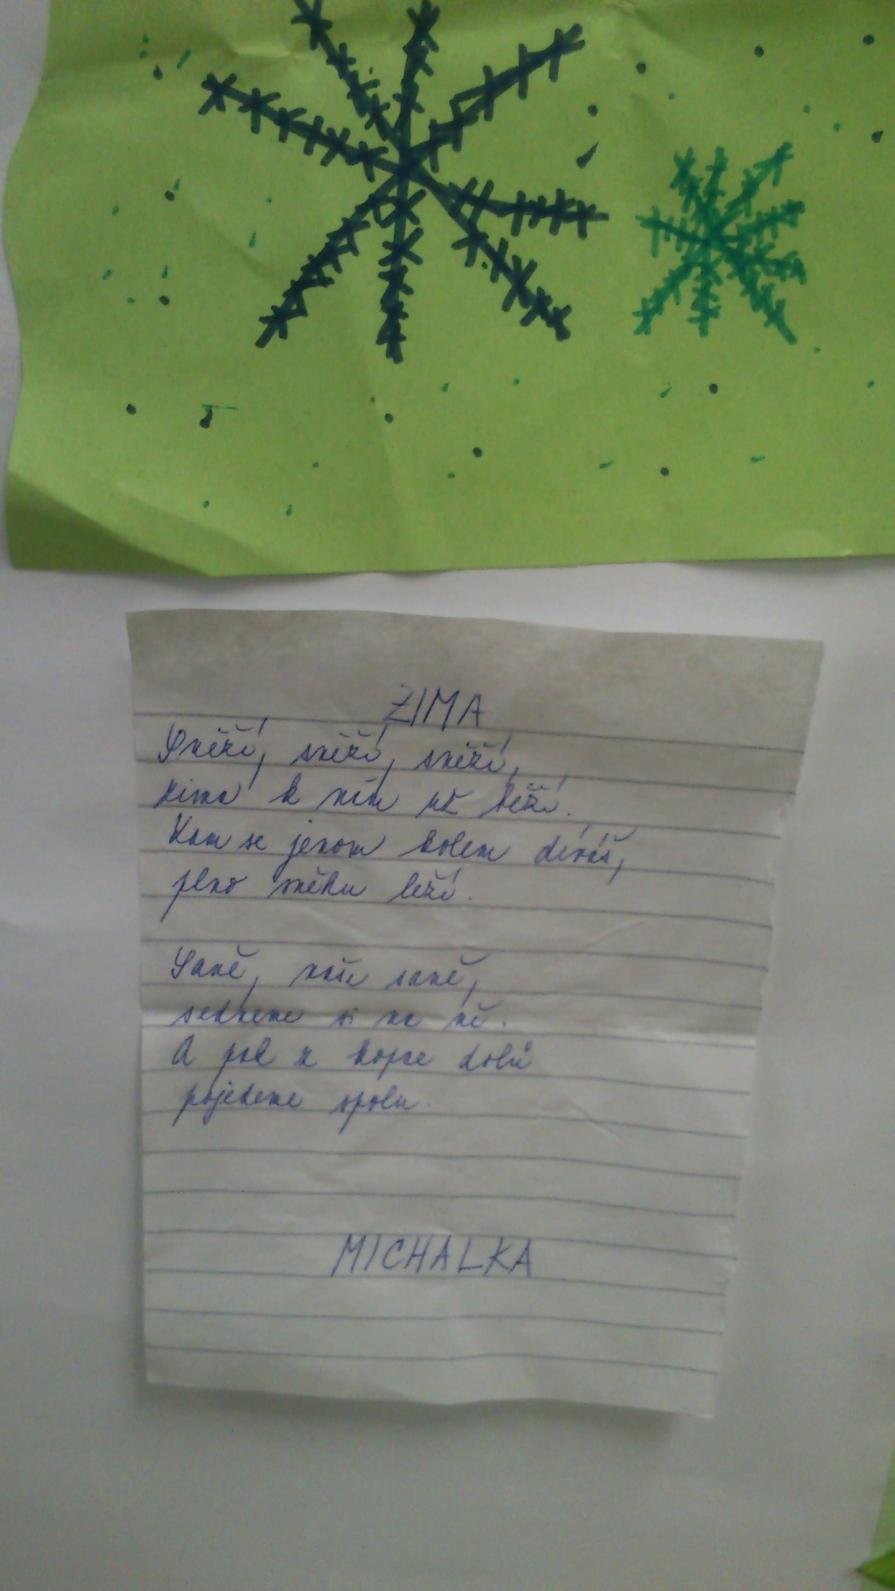 ZIMA
Sněží, sněží, sněží,
zima k nám už běží.
Kam se jenom kolem díváš,
plno sněhu leží.
Saně, naše saně,
sedneme si na ně.
A pak z kopce dolů
pojedeme spolu.
MICHALKA